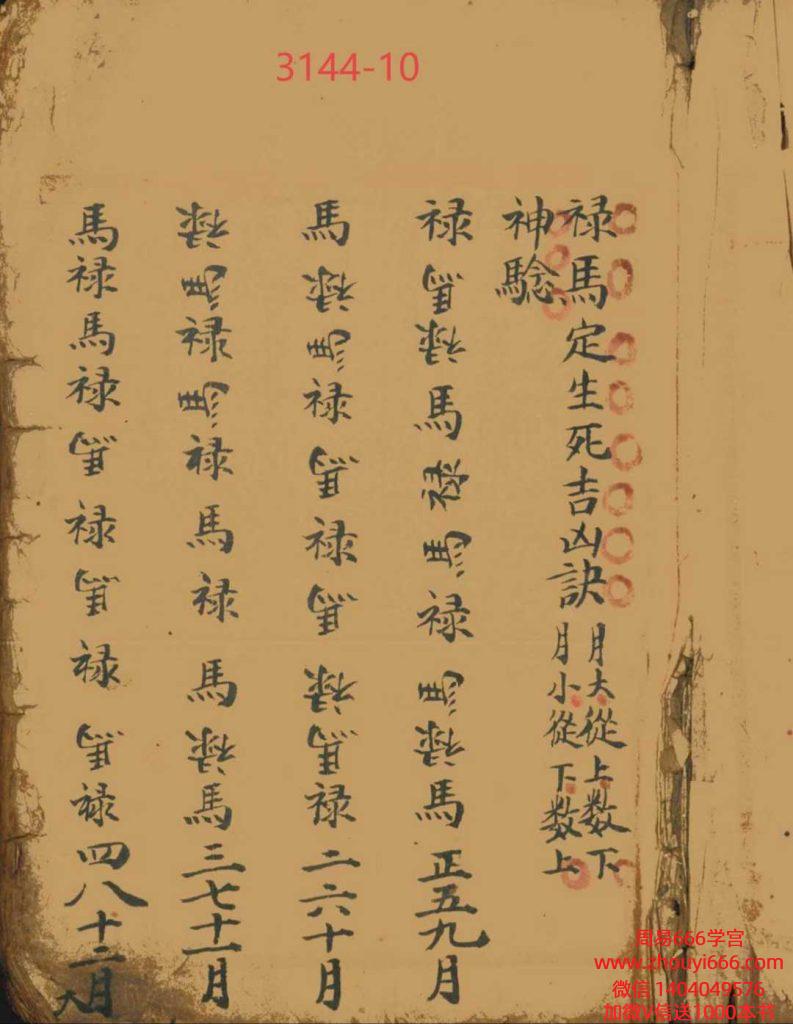 3144-10
禄馬定生死吉凶訣
神騐
月大從上数下
月小從下数上
禄馬禄馬禄馬禄馬禄馬正五九月
馬禄馬禄馬禄馬禄馬禄二六十月
禄馬禄馬禄馬禄馬禄馬三七十一月
馬禄馬禄馬禄馬禄馬禄四八十二月
大
周易666学宫
www.zhouyi666.com
微信 1404049576
加微V信送1000本书